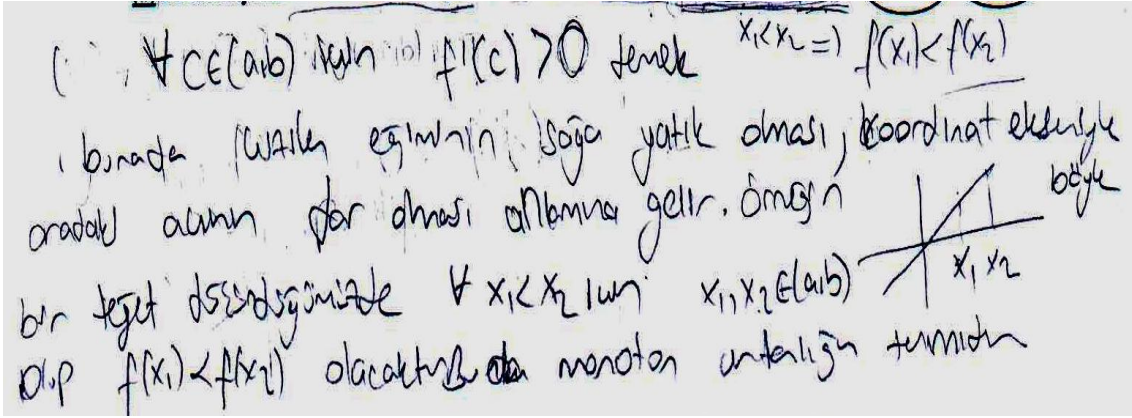 ∀ c∈(a,b) için f'(c) > 0 demek x₁<x₂ ⇒ f(x₁)<f(x₂)
burada eğiminin sağa yatık olması, koordinat ekseniyle
aradaki açının dar olması anlamına gelir. Örneğin böyle
bir teğet düşündüğümüzde ∀ x₁<x₂ için x₁,x₂∈(a,b) x₁ x₂
olup f(x₁)<f(x₂) olacaktır. Bu da monoton artanlığın tanımıdır